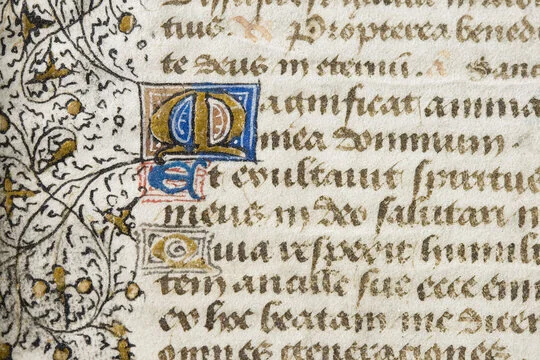 tuis. V. Propterea bened
te deus in eternū. a. Sanc
Magnificat anima
mea dominum.
Et exultauit spiritus
meus in deo salutari m
Quia respexit humili
tem ancille sue ecce eni
ex hoc beatam me dicen
omnes generationes